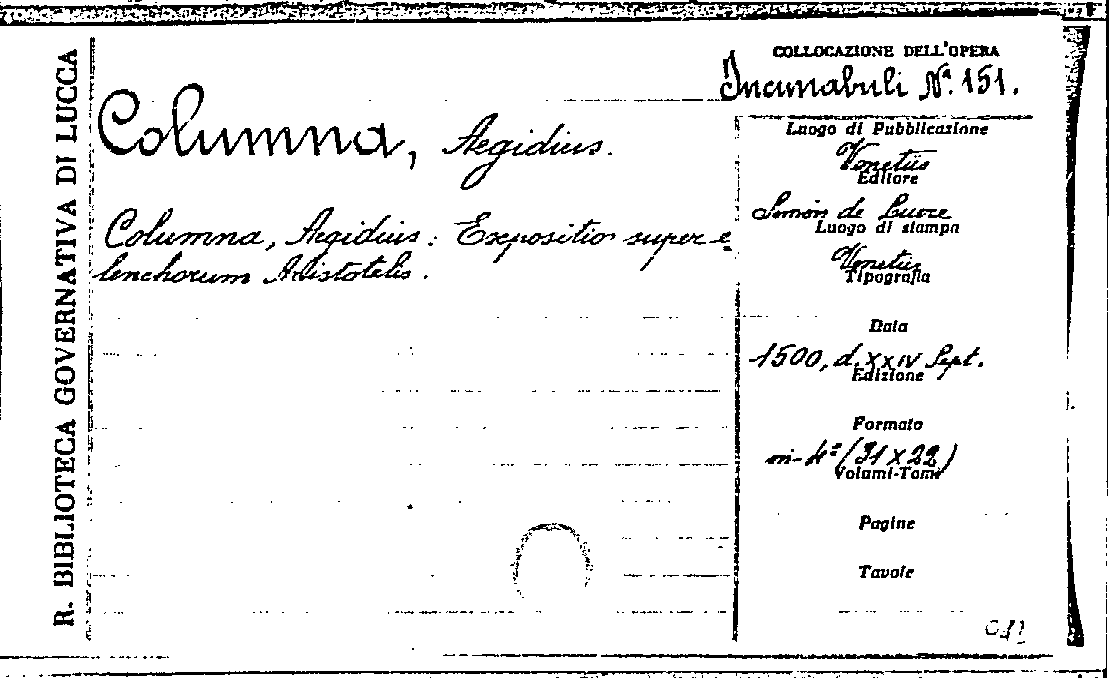 R. BIBLIOTECA GOVERNATIVA DI LUCCA
Columna, Aegidius.
Columna, Aegidius: Expositio super e
lenchorum Aristotelis.
COLLOCAZIONE DELL'OPERA
Incunabuli Nº. 151.
Luogo di Pubblicazione
Venetiis
Editore
Simon de Luere
Luogo di stampa
Venetiis
Tipografia
Data
1500, d. XXIV Sept.
Edizione
Formato
in-4º (31 x 22)
Volumi-Tomi
Pagine
Tavole